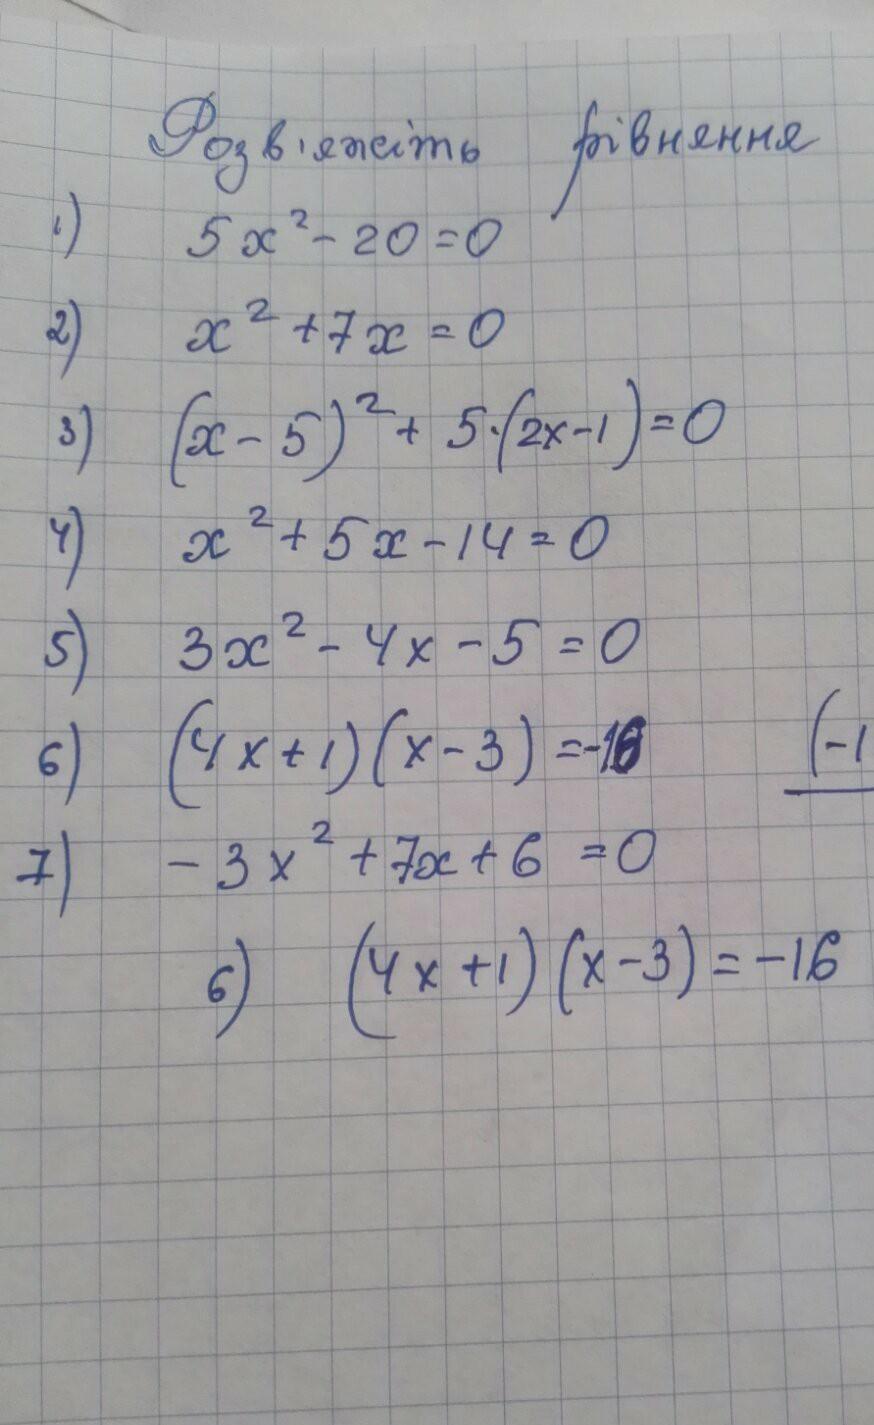 Розв'яжіть рівняння
1) 5x² - 20 = 0
2) x² + 7x = 0
3) (x - 5)² + 5·(2x - 1) = 0
4) x² + 5x - 14 = 0
5) 3x² - 4x - 5 = 0
6) (4x + 1)(x - 3) = -16
(-1
7) - 3x² + 7x + 6 = 0
6) (4x + 1)(x - 3) = -16